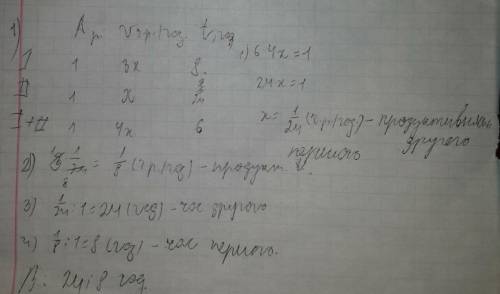 1) A, р. v, р./год t, год
I 1 3x 8 1) 6·4x=1
II 1 x 24 24x=1
I+II 1 4x 6 x= 1/24 (р/год) – продуктивність другого
2) 3·1/24 = 1/8 (р/год) – продукт. першого
3) 1/24 : 1=24 (год) – час другого
4) 1/8 : 1=8 (год) – час першого.
В: 24 і 8 год.